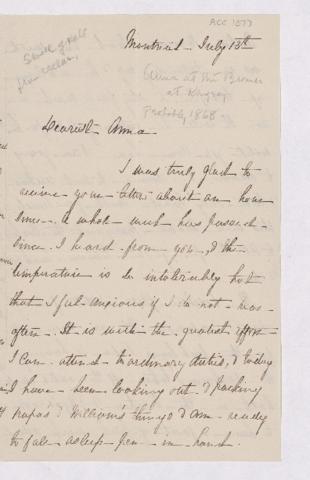 ACC 1577
Montreal July 13th
Anna at the
at
Probably 1868
Dearest Anna
I was truly glad to
receive your letter about an hour
since. A whole week has passed
since I heard from you, & the
temperature is so intolerably hot
that I feel anxious if I do not hear
often. It is with the greatest effort
I can attend to ordinary duties, & today
I have been looking out & packing
papa's & William's things & am ready
to fall asleep pen in hand.